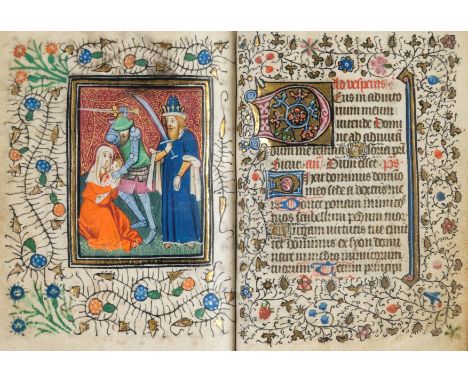 Ad vesperas
Deus in adiuto
rium meum
intende Domi
ne ad adiuva
dum me festina Gloria pri
Sicut an Dum esset ps
Dixit dominus domino
meo sede a dextris me
is Donec ponam inimi
cos tuos scabellum pedum tuor
Virgam virtutis tue emit
tet dominus ex syon domi
nare in medio inimicorum
tuorum Tecum principi